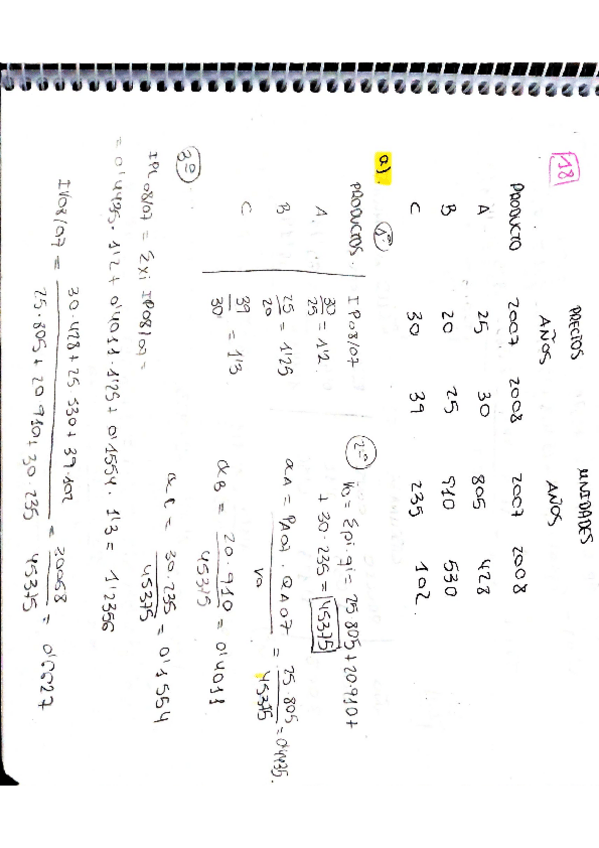 18
PRECIOS UNIDADES
AÑOS AÑOS
PRODUCTO 2007 2008 2007 2008
A 25 30 805 428
B 20 25 910 530
C 30 39 235 102.
a). 1º
PRODUCTOS. IP08/07
A 30/25 = 1'2.
B 25/20 = 1'25
C 39/30 = 1'3
2º V0 = Σpi·qi = 25·805 + 20·910 +
+ 30·235 = 45375
αA = PA07 · QA07 / V0 = 25·805 / 45375 = 0'4435.
αB = 20·910 / 45375 = 0'4011
αC = 30·235 / 45375 = 0'1554
3º
IPL 08/07 = Σαi IP08/07 =
= 0'4435 · 1'2 + 0'4011 · 1'25 + 0'1554 · 1'3 = 1'2356
IV08/07 = 30·428 + 25·530 + 39·102 / 25·805 + 20·910 + 30·235 = 20068 / 45375 =